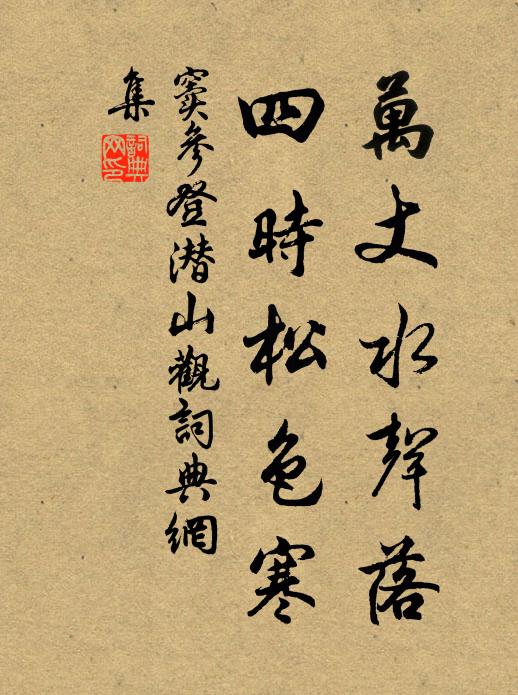 萬丈水聲落
四時松色寒
竇參登潛山觀詞典網
集
詞典網印